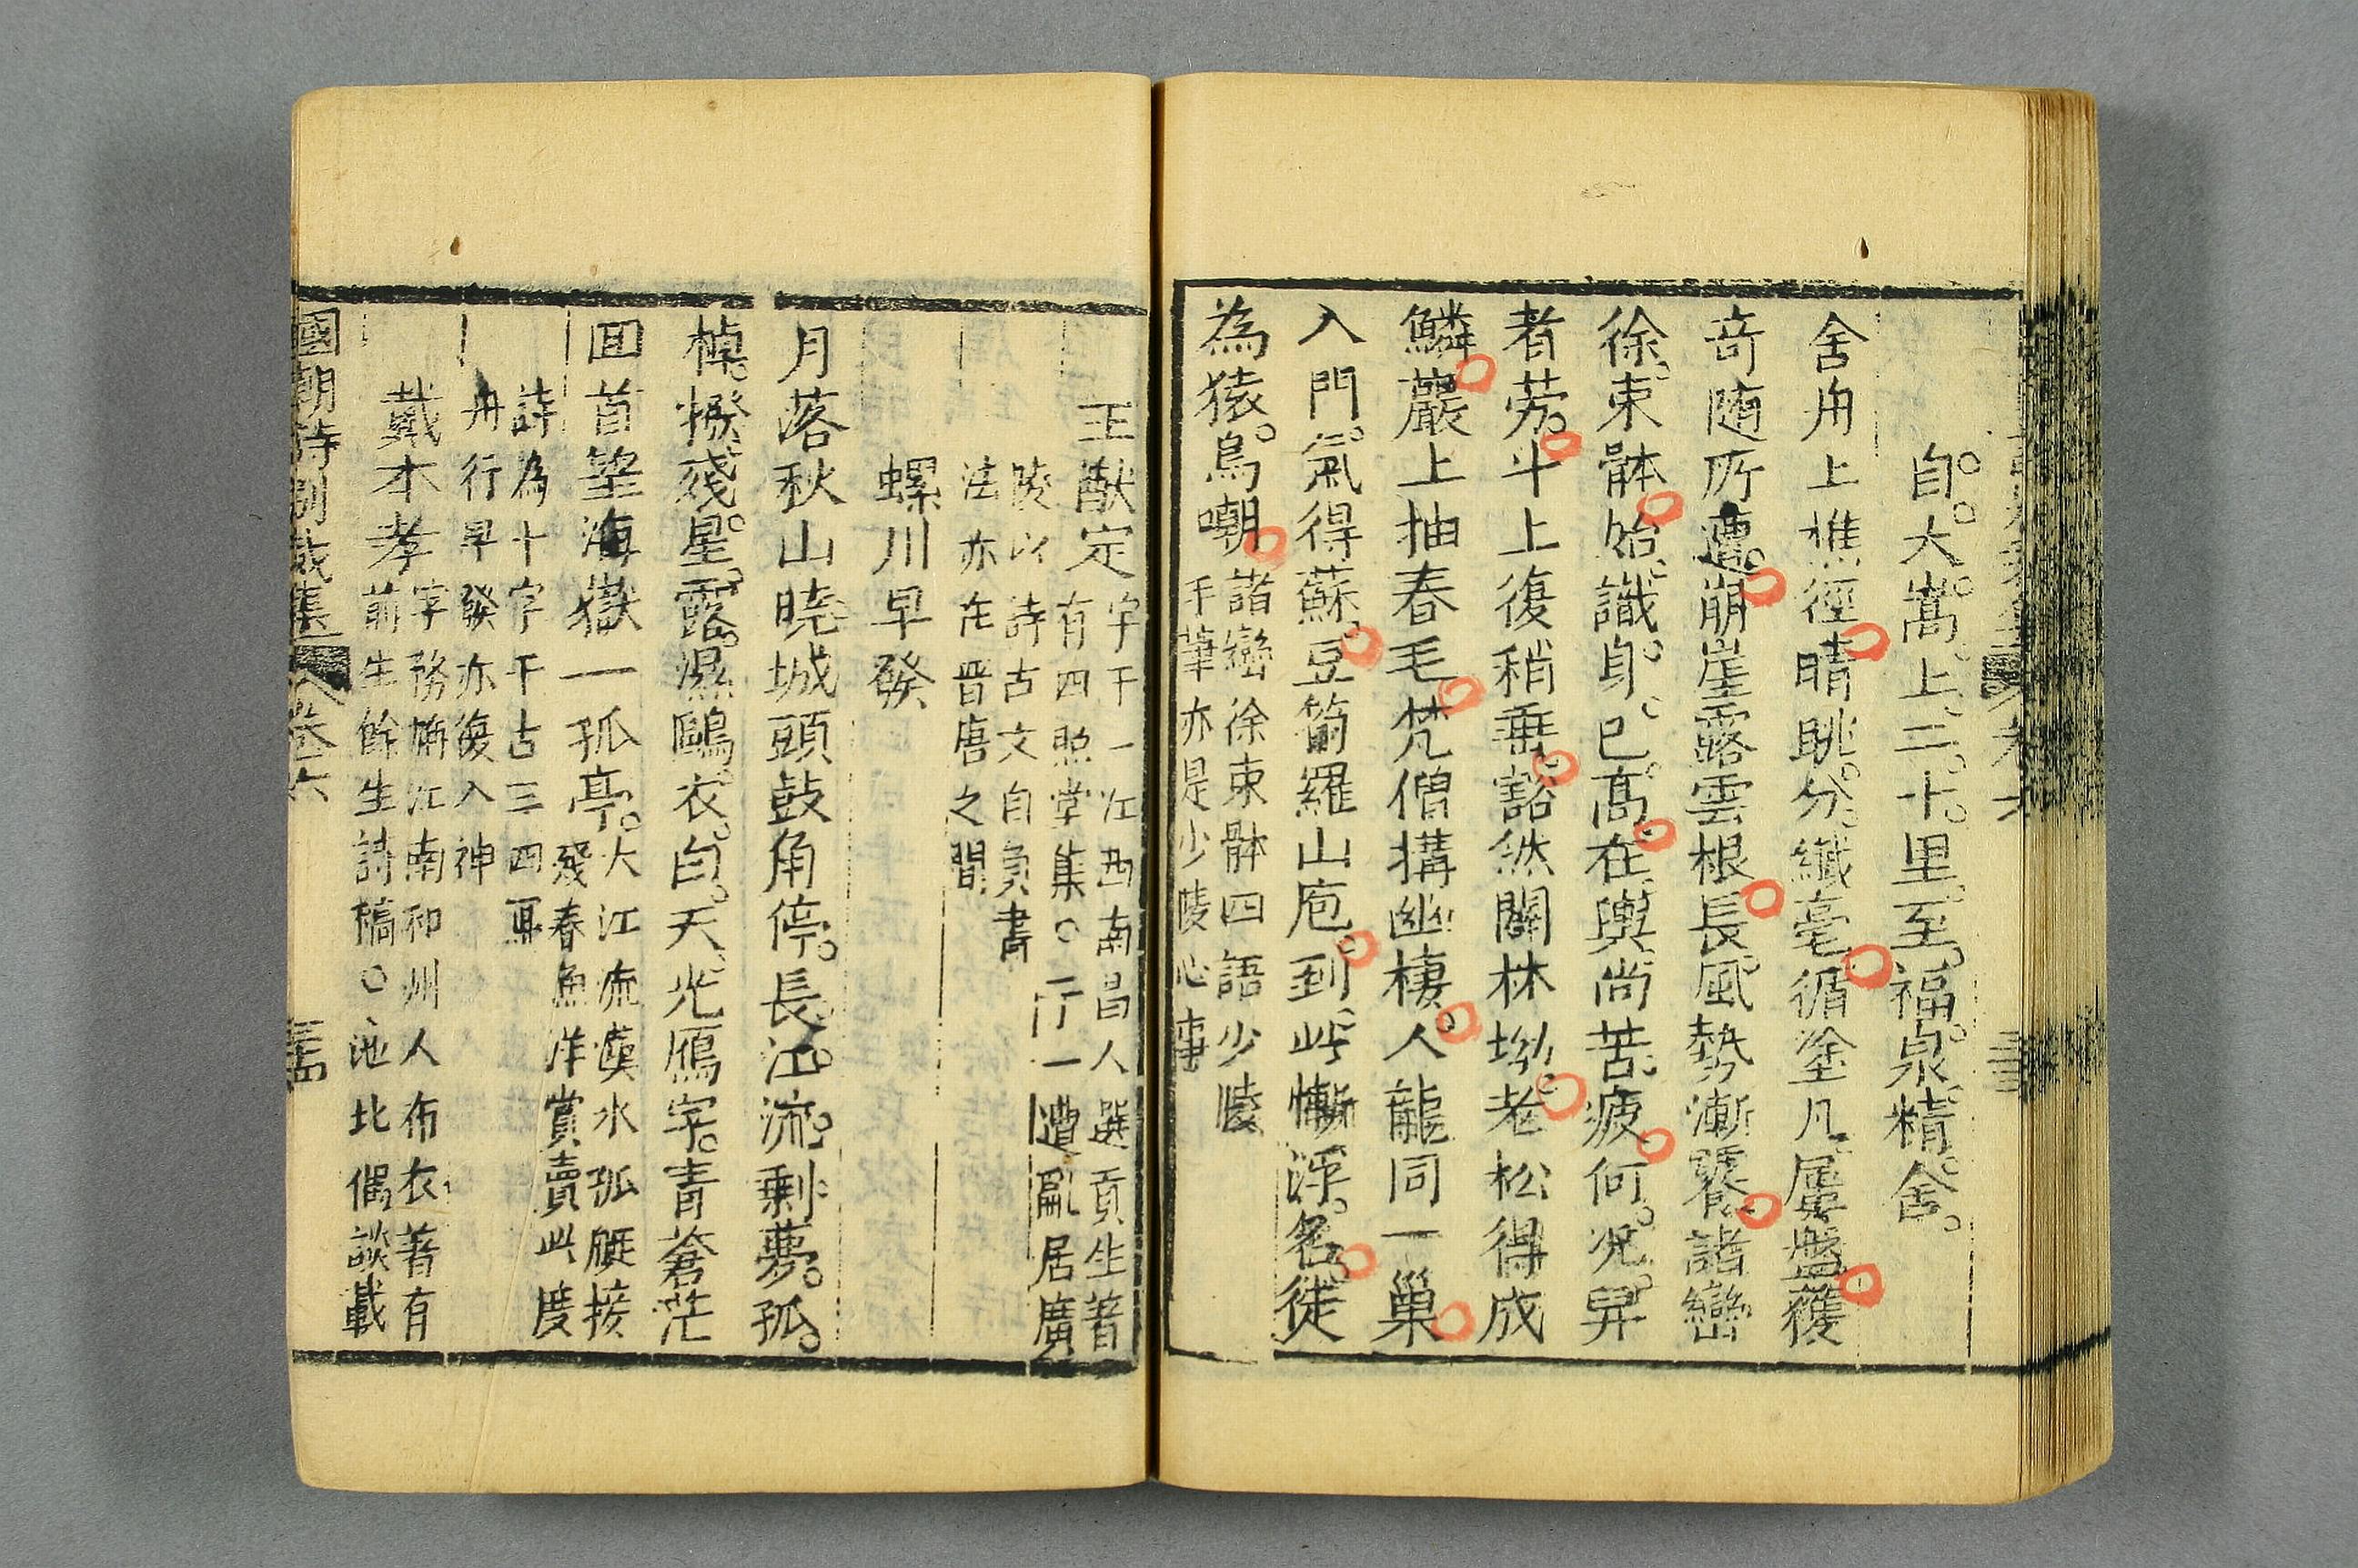 自大嵩上二十里至福泉精舍
舍舟上樵徑晴眺分纖毫循塗凡屢盤獲
竒随所遭崩崖露雲根長風勢漸饕諸巒
徐束骵始識身已髙在輿尚苦疲何况舁
者劳斗上復稍乗豁然闢林坳老松得成
鱗巖上抽春毛梵僧搆幽棲人龍同一巢
入門氣得蘇豆筍羅山庖到此慚浮名徒
為猿鳥嘲
諸巒徐束骵四語少陵
手筆亦是少陵心事
王猷定
字于一江西南昌人選貢生著
有四照堂集○于一遭亂居廣
陵以詩古文自負書
法亦在晋唐之間
螺川早發
月落秋山曉城頭鼓角停長江流剩夢孤
棹撥殘星露濕鷗衣白天光鴈字青蒼茫
囬首望海嶽一孤亭
大江流漢水孤艇接
殘春魚洋賞賣此度
詩為十字千古三四耳
舟行早發亦復入神
戴本孝
字務旃江南和州人布衣著有
前生餘生詩稿○池北偶談載
國朝詩別裁集
卷六